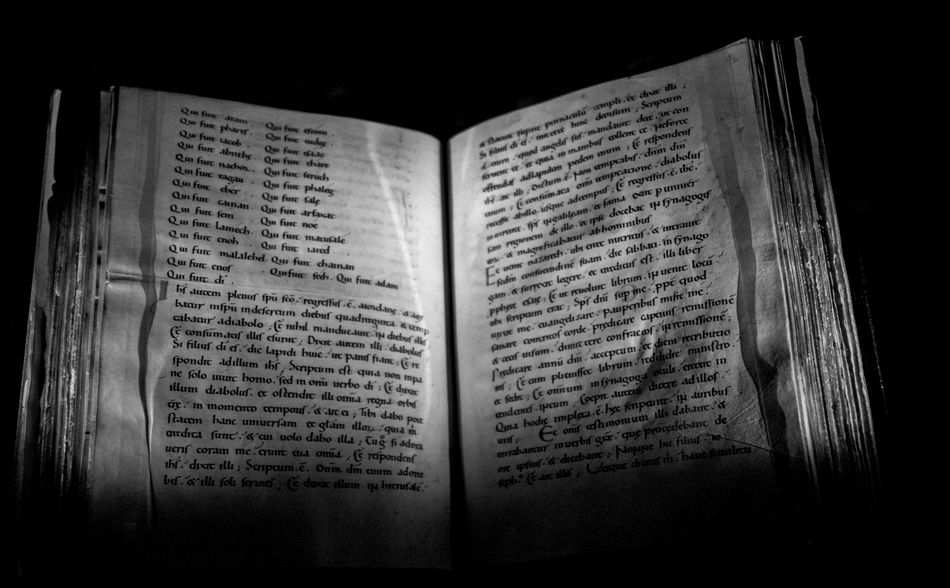 Qui fuit aram. Qui fuit esrom.
Qui fuit phares. Qui fuit iudae
Qui fuit iacob. Qui fuit isaac
Qui fuit abrahę Qui fuit thare
Qui fuit nachor. Qui fuit seruch
Qui fuit ragau. Qui fuit phaleg
Qui fuit eber Qui fuit sale
Qui fuit cainan. Qui fuit arfaxat
Qui fuit sem Qui fuit noe
Qui fuit Lamech. Qui fuit matusale
Qui fuit enoh Qui fuit iared
Qui fuit malalehel. Qui fuit chainan
Qui fuit enos. Qui fuit seth. Qui fuit adam
Qui fuit di.
ihs autem plenus spu sco. regressus. ē. aiordane. & age
batur inspu indesertum diebus quadraginta. & temp
tabatur adiabolo; Et nihil manducauit in diebus illis
Et consumatis illis esuriit; Dixit autem illi diabolus
Si filius di es. dic lapidi huic ut panis fiat; Et re
spondit adillum ihs; Scriptum est quia non inpa
ne solo uiuit homo. sed in omi uerbo di; Et duxit
illum diabolus. et ostendit illi omnia regna orbis
in momento temporis. & ait ei; Tibi dabo pote
statem hanc uniuersam et głam illoɀ. quia m
tradita sunt. & cui uolo dabo illa; Tu g si adora
ueris coram me. erunt tua omia; Et respondens
ihs. dixit illi; Scriptum. ē. Dnm dm tuum adora
bis. & illi soli seruies; Et duxit illum in hierusale
& statuit supra pinnaculū templi. et dixit illi;
Si filius di es. mitte hinc deorsum; Scriptum
ē enim. quod angelis suis mandauit de te. ut con
seruent te. et quia in manibus tollent te. ne forte
offendas adlapidem pedem tuum; Et respondens
ihs ait illi; Dictum. ē. Non temptabis. dnm dm
tuum; Et consumata omi temptatione. diabolus
recessit abillo. usque adtempus; Et regressus. ē. ihs.
in uirtute sps in galileam. et fama exiit p uniuer
sam regionem de illo. et ipse docebat in synagogis
eoɀ. & magnificabatur abhominibus
Et uenit nazareth. ubi erat nutritus. & intrauit
sedm consuetudinē suam. die sabbati. in synago
gam. & surrexit legere. et traditus est illi liber
pphetę esaię; Et ut reuoluit librum. inuenit locū
ubi scriptum erat; Sps dni sup me. ppt quod
unxit me. euangelizare pauperibus misit me.
sanare contritos corde. predicare captiuis remissionē
& cecis uisum. dimittere confractos in remissionē;
Predicare annū dni acceptum et diem retributio
nis; Et cum plicuisset librum. reddidit ministro.
et sedit; Et omnium in synagoga oculi erant in
tendentes ineum; Coepit autem dicere ad illos.
Quia hodie impleta. ē. hęc scriptura. in auribus
uris; Et oms testimonium illi dabant. &
mirabantur in uerbis gratię. quę procedebant de
ore ipsius & dicebant; Nonne hic filius. io
seph? Et ait illis; Utique dicetis m. hanc similitu